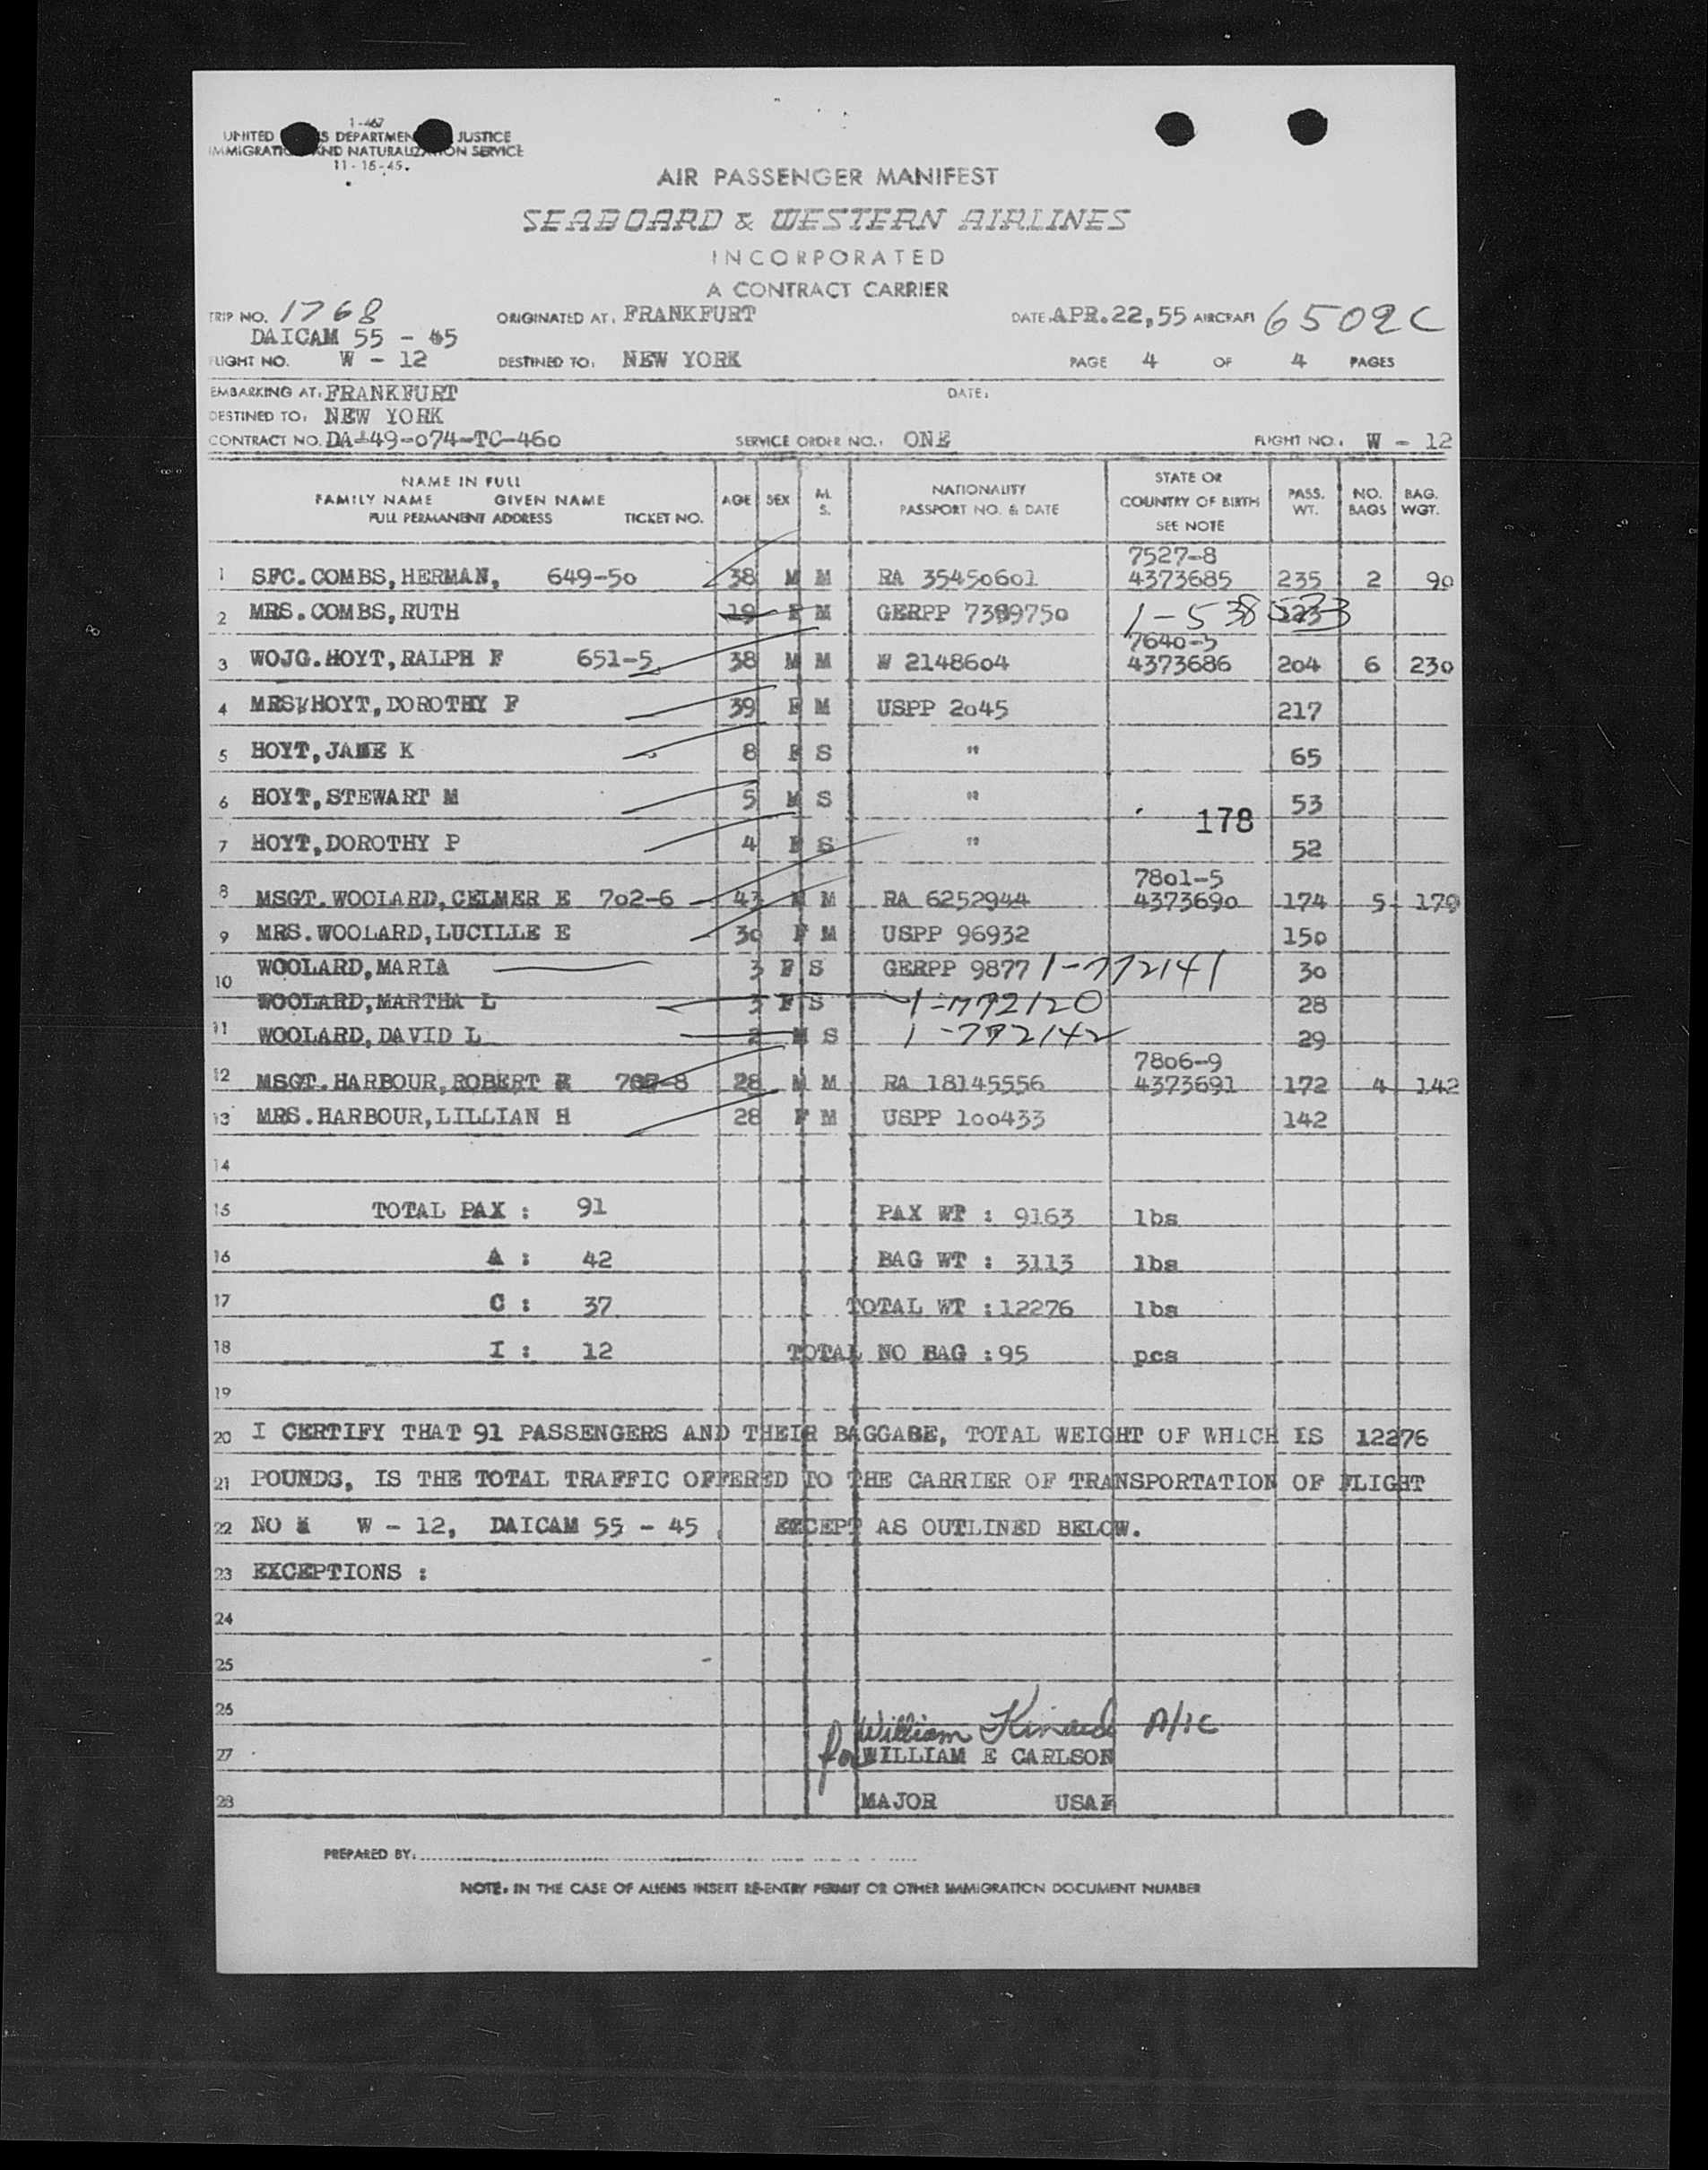 1-467
UNITED S DEPARTMEN JUSTICE
IMMIGRATIO AND NATURALIZATION SERVICE
11-16-45.
AIR PASSENGER MANIFEST
SEABOARD & WESTERN AIRLINES
INCORPORATED
A CONTRACT CARRIER
TRIP NO. 1768 ORIGINATED AT, FRANKFURT DATE, APR.22,55 AIRCRAFT 6502C
DAICAM 55 - 45
FLIGHT NO. W - 12 DESTINED TO, NEW YORK PAGE 4 OF 4 PAGES
EMBARKING AT, FRANKFURT DATE,
DESTINED TO, NEW YORK
CONTRACT NO. DA-49-074-TC-460 SERVICE ORDER NO., ONE FLIGHT NO., W - 12
NAME IN FULL
FAMILY NAME GIVEN NAME
FULL PERMANENT ADDRESS TICKET NO. AGE SEX M. S. NATIONALITY PASSPORT NO. & DATE STATE OR COUNTRY OF BIRTH SEE NOTE PASS. WT. NO. BAGS BAG. WGT.
7527-8
1 SFC. COMBS, HERMAN, 649-50 38 M M RA 35450601 4373685 235 2 90
2 MRS. COMBS, RUTH 19 F M GERPP 7389750 1-538 523
7640-3
3 WOJG. HOYT, RALPH F 651-5 38 M M W 2148604 4373686 204 6 230
4 MRS HOYT, DOROTHY F 39 F M USPP 2045 217
5 HOYT, JANE K 8 F S " 65
6 HOYT, STEWART M 5 M S " 53
178
7 HOYT, DOROTHY P 4 F S " 52
7801-5
8 MSGT. WOOLARD, CELMER E 702-6 43 M M RA 6252944 4373690 174 5 179
9 MRS. WOOLARD, LUCILLE E 30 F M USPP 96932 150
10 WOOLARD, MARIA 3 F S GERPP 9877 1-772141 30
WOOLARD, MARTHA L 3 F S 1-772120 28
11 WOOLARD, DAVID L 2 M S 1-772142 29
7806-9
12 MSGT. HARBOUR, ROBERT 28 M M RA 18145556 4373691 172 4 142
13 MRS. HARBOUR, LILLIAN H 28 F M USPP 100433 142
14
15 TOTAL PAX : 91 PAX WT : 9163 lbs
16 A : 42 BAG WT : 3113 lbs
17 C : 37 TOTAL WT : 12276 lbs
18 I : 12 TOTAL NO BAG : 95 pcs
19
20 I CERTIFY THAT 91 PASSENGERS AND THEIR BAGGABE, TOTAL WEIGHT OF WHICH IS 12276
21 POUNDS, IS THE TOTAL TRAFFIC OFFERED TO THE CARRIER OF TRANSPORTATION OF FLIGHT
22 NO W - 12, DAICAM 55 - 45 EXCEPT AS OUTLINED BELOW.
23 EXCEPTIONS :
24
25
26 William A/1C
27 for WILLIAM E CARLSON
28 MAJOR USAF
PREPARED BY,
NOTE, IN THE CASE OF ALIENS INSERT RE-ENTRY PERMIT OR OTHER IMMIGRATION DOCUMENT NUMBER